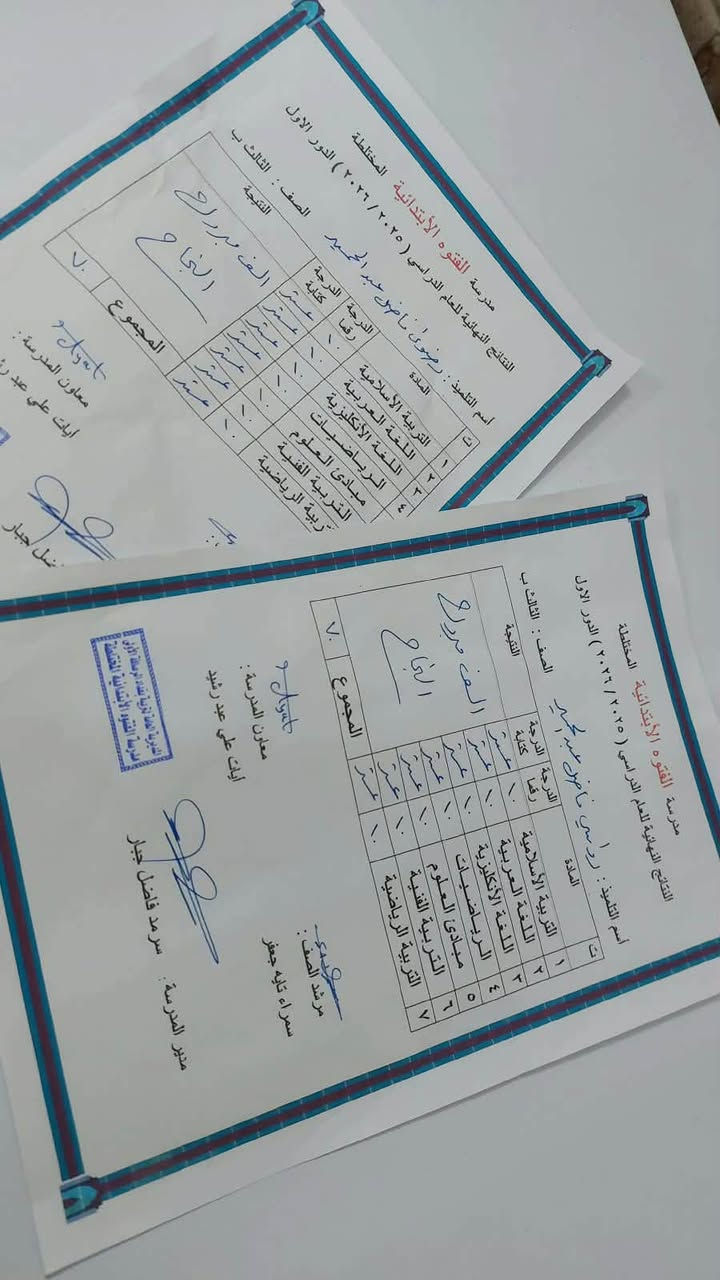 مدرسة الفتوه الأبتدائية المختلطة
النتائج النهائية للعام الدراسي ( ٢٠٢٥ / ٢٠٢٦ ) الدور الاول
اسم التلميذ : رضوى فاضل عبد الحميد
الصف : الثالث ب
ت المادة الدرجة رقما الدرجة كتابة النتيجة
١ التربية الأسلامية ١٠ عشرة
٢ اللغة العربية ١٠ عشرة
٣ اللغة الأنكليزية ١٠ عشرة
٤ الرياضيات ١٠ عشرة
مبادئ العلوم ١٠ عشرة
التربية الفنية
التربية الرياضية ١٠ عشرة
الف مبروك
النجاح
المجموع ٧٠
معاون المدرسة :
ايات علي عبد رشيد
فاضل جبار
مدرسة الفتوه الأبتدائية المختلطة
النتائج النهائية للعام الدراسي ( ٢٠٢٥ / ٢٠٢٦ ) الدور الاول
اسم التلميذ : فاضل عبد الحميد
الصف : الثالث ب
ت المادة الدرجة رقما الدرجة كتابة النتيجة
١ التربية الأسلامية ١٠ عشرة
٢ اللغة العربية ١٠ عشرة
٣ اللغة الأنكليزية ١٠ عشرة
٤ الرياضيات ١٠ عشرة
٥ مبادئ العلوم ١٠ عشرة
٦ التربية الفنية ١٠ عشرة
٧ التربية الرياضية ١٠ عشرة
الف مبروك
النجاح
المجموع ٧٠
مرشد الصف :
سمراء تايه جعفر
معاون المدرسة :
ايات علي عبد رشيد
مدير المدرسة : سرمد فاضل جبار
المديرية العامة لتربية بغداد الرصافة الاولى
مدرسة الفتوه الأبتدائية المختلطة